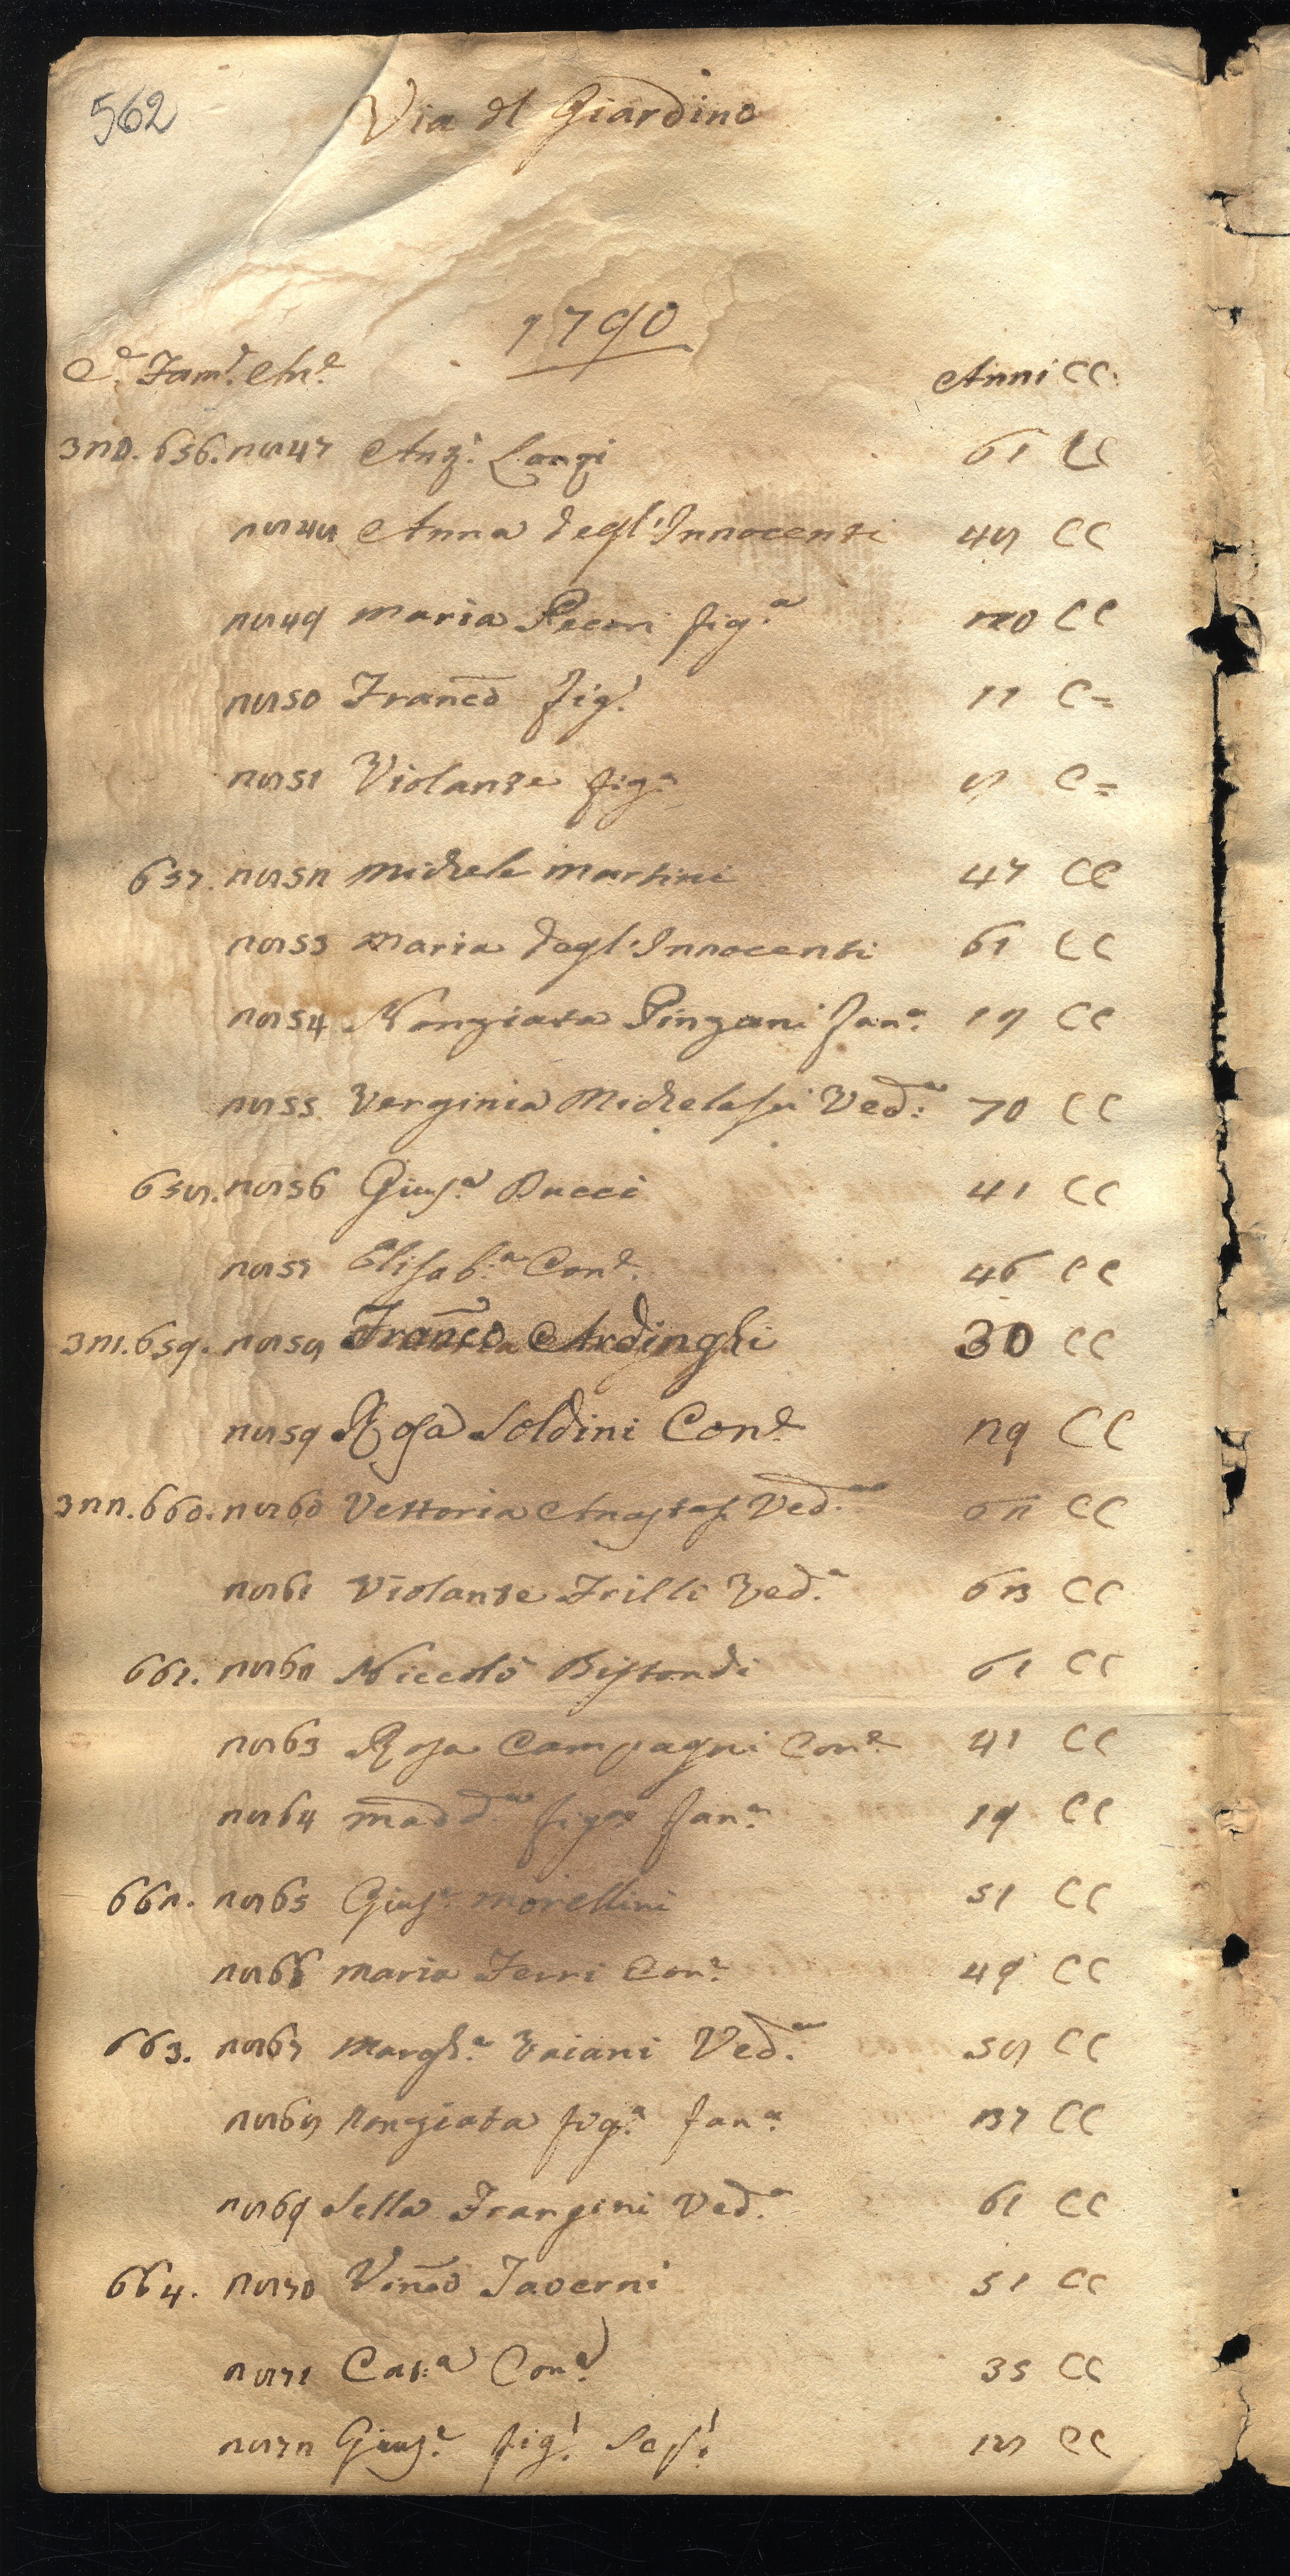 562
Via dl Giardino
1790
C.e Fam.e An.e Anni CC.
320. 656. 2847 Ang.o Longi 61 CC
2848 Anna degl'Innocenti 48 CC
2849 Maria Pecori fig.a 20 CC
2850 Franco fig.o 11 C=
2851 Violante fig.a 8 C=
657. 2852 Michele Martini 47 CC
2853 Maria degl'Innocenti 61 CC
2854 Nonziata Pinzani fan.a 18 CC
2855 Verginia Michelassi Ved.a 70 CC
658. 2856 Gius.e Bucci 41 CC
2857 Elisab.a Con.e 46 CC
321. 659. 2858 Franco Ardinghi 30 CC
2859 Rosa Soldini Con.e 29 CC
322. 660. 2860 Vettoria Anastasi Ved.a 62 CC
2861 Violante Frilli Ved.a CC
661. 2862 Niccolò Bistondi 61 CC
2863 Rosa Campagni Con.e 41 CC
2864 Madd.a fig.a fan.a 19 CC
662. 2865 Gius.e Morellini 51 CC
2866 Maria Ferri Con.e 49 CC
663. 2867 Margh.a Vaiani Ved.a 58 CC
2868 Nonziata fig.a fan.a 27 CC
2869 Sella Frangini Ved.a 61 CC
664. 2870 Vinco Taverni 51 CC
2871 Cat.a Con.e 35 CC
2872 Gius.e fig.o Sco.o 18 CC